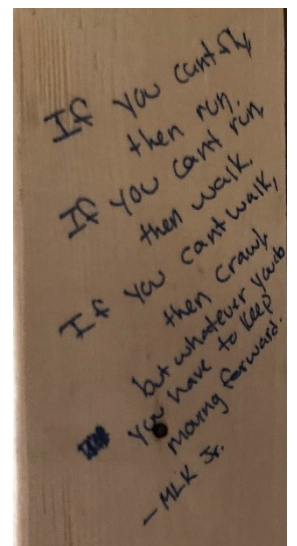 If you cant fly
then run.
If you cant run,
then walk.
If you cant walk,
then crawl,
but whatever you do
you have to keep
moving forward.
- MLK Jr.